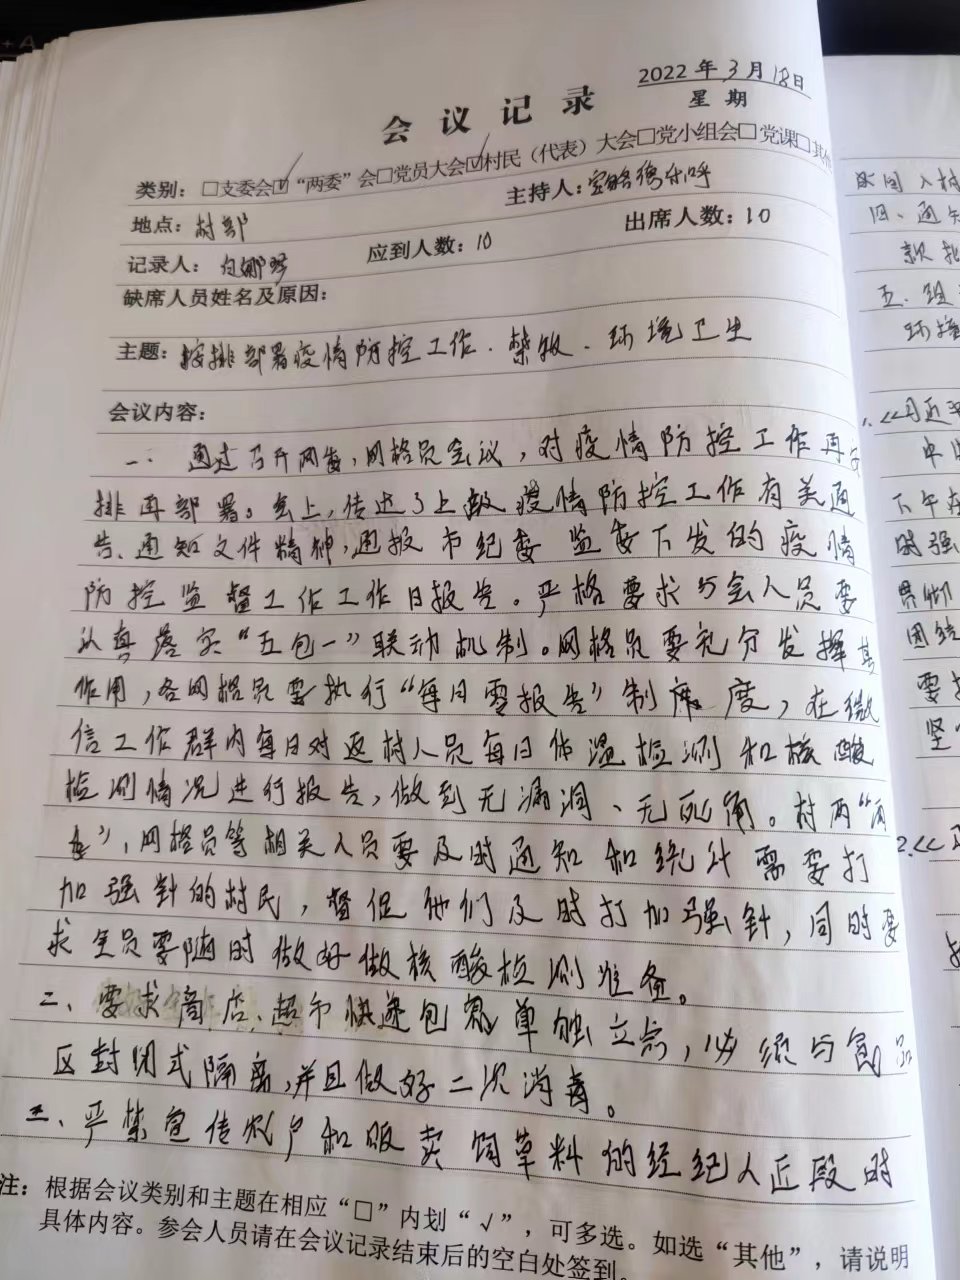 2022年3月18日
会议记录
星期
类别：□支委会☑“两委”会□党员大会☑村民（代表）大会□党小组会□党课□其他
地点：村部 主持人：宝
记录人：白娜 应到人数：10 出席人数：10
缺席人员姓名及原因：
主题：按排部署疫情防控工作．禁牧．环境卫生
会议内容：
一．通过召开两委，网格员会议，对疫情防控工作再安
排再部署。会上，传达了上级疫情防控工作有关通
告、通知文件精神，通报市纪委监委下发的疫情
防控监督工作工作日报告。严格要求与会人员要
认真落实“五包一”联动机制。网格员要充分发挥其
作用，各网格员要执行“每日零报告”制度，在微
信工作群内每日对返村人员每日体温检测和核酸
检测情况进行报告，做到无漏洞、无死角。村两“两
委”，网格员等相关人员要及时通知和统计需要打
加强针的村民，督促他们及时打加强针，同时要
求全员要随时做好做核酸检测准备。
二、要求商店、超市快递包裹单独立点，必须与食品
区封闭式隔离，并且做好二次消毒。
三、严禁宣传农户和贩卖饲草料的经纪人近段时
注：根据会议类别和主题在相应“□”内划“√”，可多选。如选“其他”，请说明
具体内容。参会人员请在会议记录结束后的空白处签到。
四、通知
五、组
环境
中
下午在
团结
要
坚